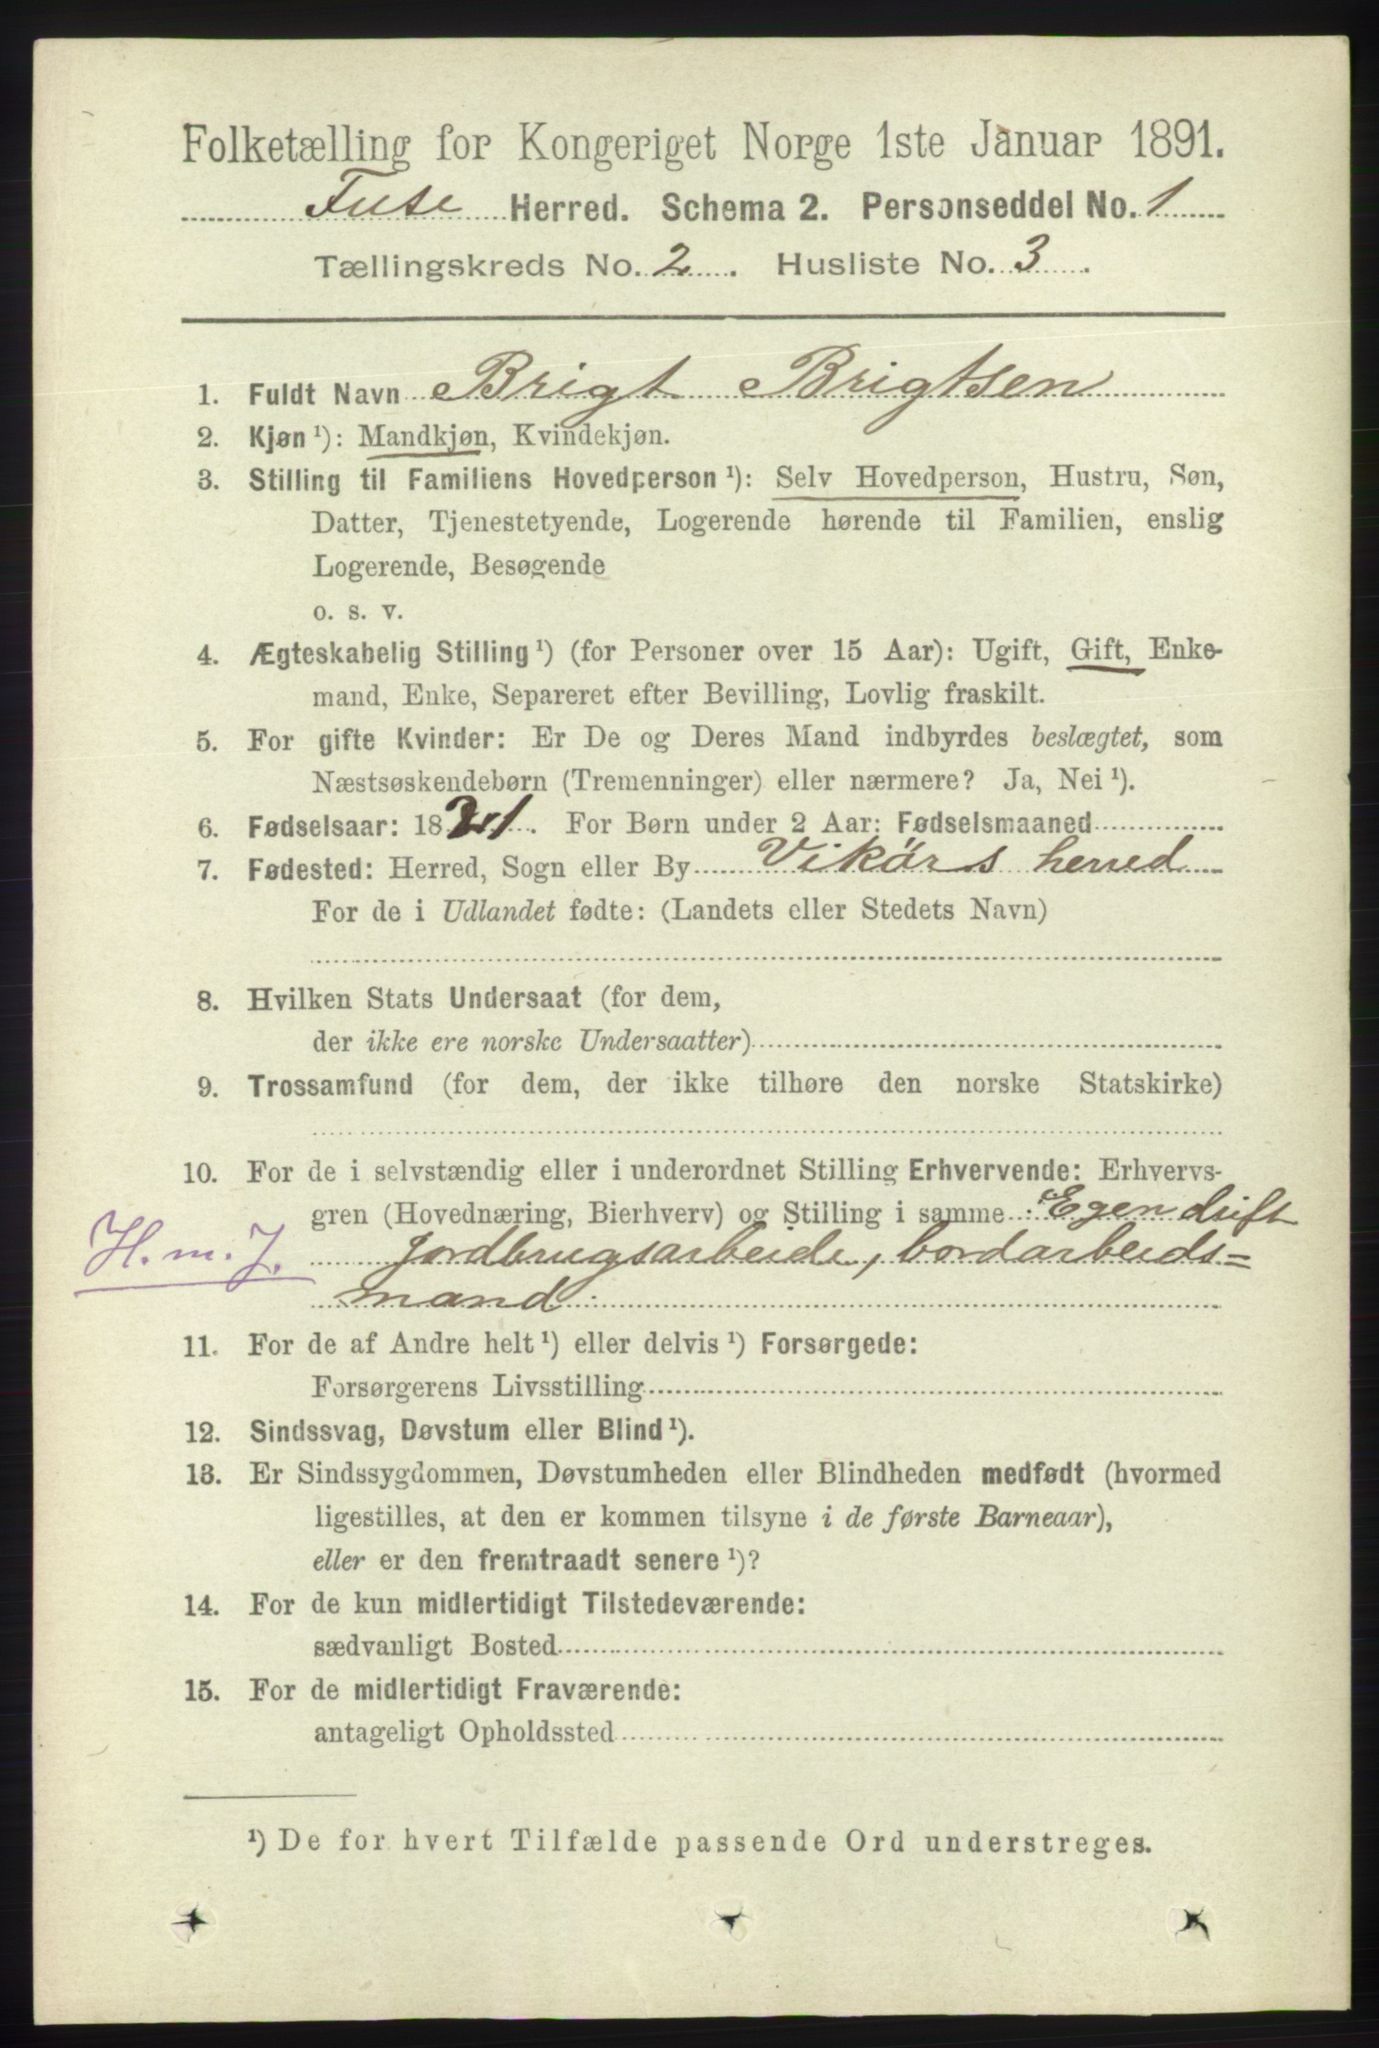 Folketælling for Kongeriget Norge 1ste Januar 1891.
Fuse Herred. Schema 2. Personseddel No. 1
Tællingskreds No. 2. Husliste No. 3.
1. Fuldt Navn Brigt Brigtsen
2. Kjøn ¹): Mandkjøn, Kvindekjøn.
3. Stilling til Familiens Hovedperson ¹): Selv Hovedperson, Hustru, Søn,
Datter, Tjenestetyende, Logerende hørende til Familien, enslig
Logerende, Besøgende
o. s. v.
4. Ægteskabelig Stilling ¹) (for Personer over 15 Aar): Ugift, Gift, Enke-
mand, Enke, Separeret efter Bevilling, Lovlig fraskilt.
5. For gifte Kvinder: Er De og Deres Mand indbyrdes beslægtet, som
Næstsøskendebørn (Tremenninger) eller nærmere? Ja, Nei ¹).
6. Fødselsaar: 18. For Børn under 2 Aar: Fødselsmaaned
7. Fødested: Herred, Sogn eller By Vikörs herred
For de i Udlandet fødte: (Landets eller Stedets Navn)
8. Hvilken Stats Undersaat (for dem,
der ikke ere norske Undersaatter)
9. Trossamfund (for dem, der ikke tilhøre den norske Statskirke)
10. For de i selvstændig eller i underordnet Stilling Erhvervende: Erhvervs-
gren (Hovednæring, Bierhverv) og Stilling i samme Egen drift
H. m. J. Jordbrugsarbeide, bordarbeids=
mand
11. For de af Andre helt ¹) eller delvis ¹) Forsørgede:
Forsørgerens Livsstilling
12. Sindssvag, Døvstum eller Blind ¹).
13. Er Sindssygdommen, Døvstumheden eller Blindheden medfødt (hvormed
ligestilles, at den er kommen tilsyne i de første Barneaar),
eller er den fremtraadt senere ¹)?
14. For de kun midlertidigt Tilstedeværende:
sædvanligt Bosted
15. For de midlertidigt Fraværende:
antageligt Opholdssted
¹) De for hvert Tilfælde passende Ord understreges.